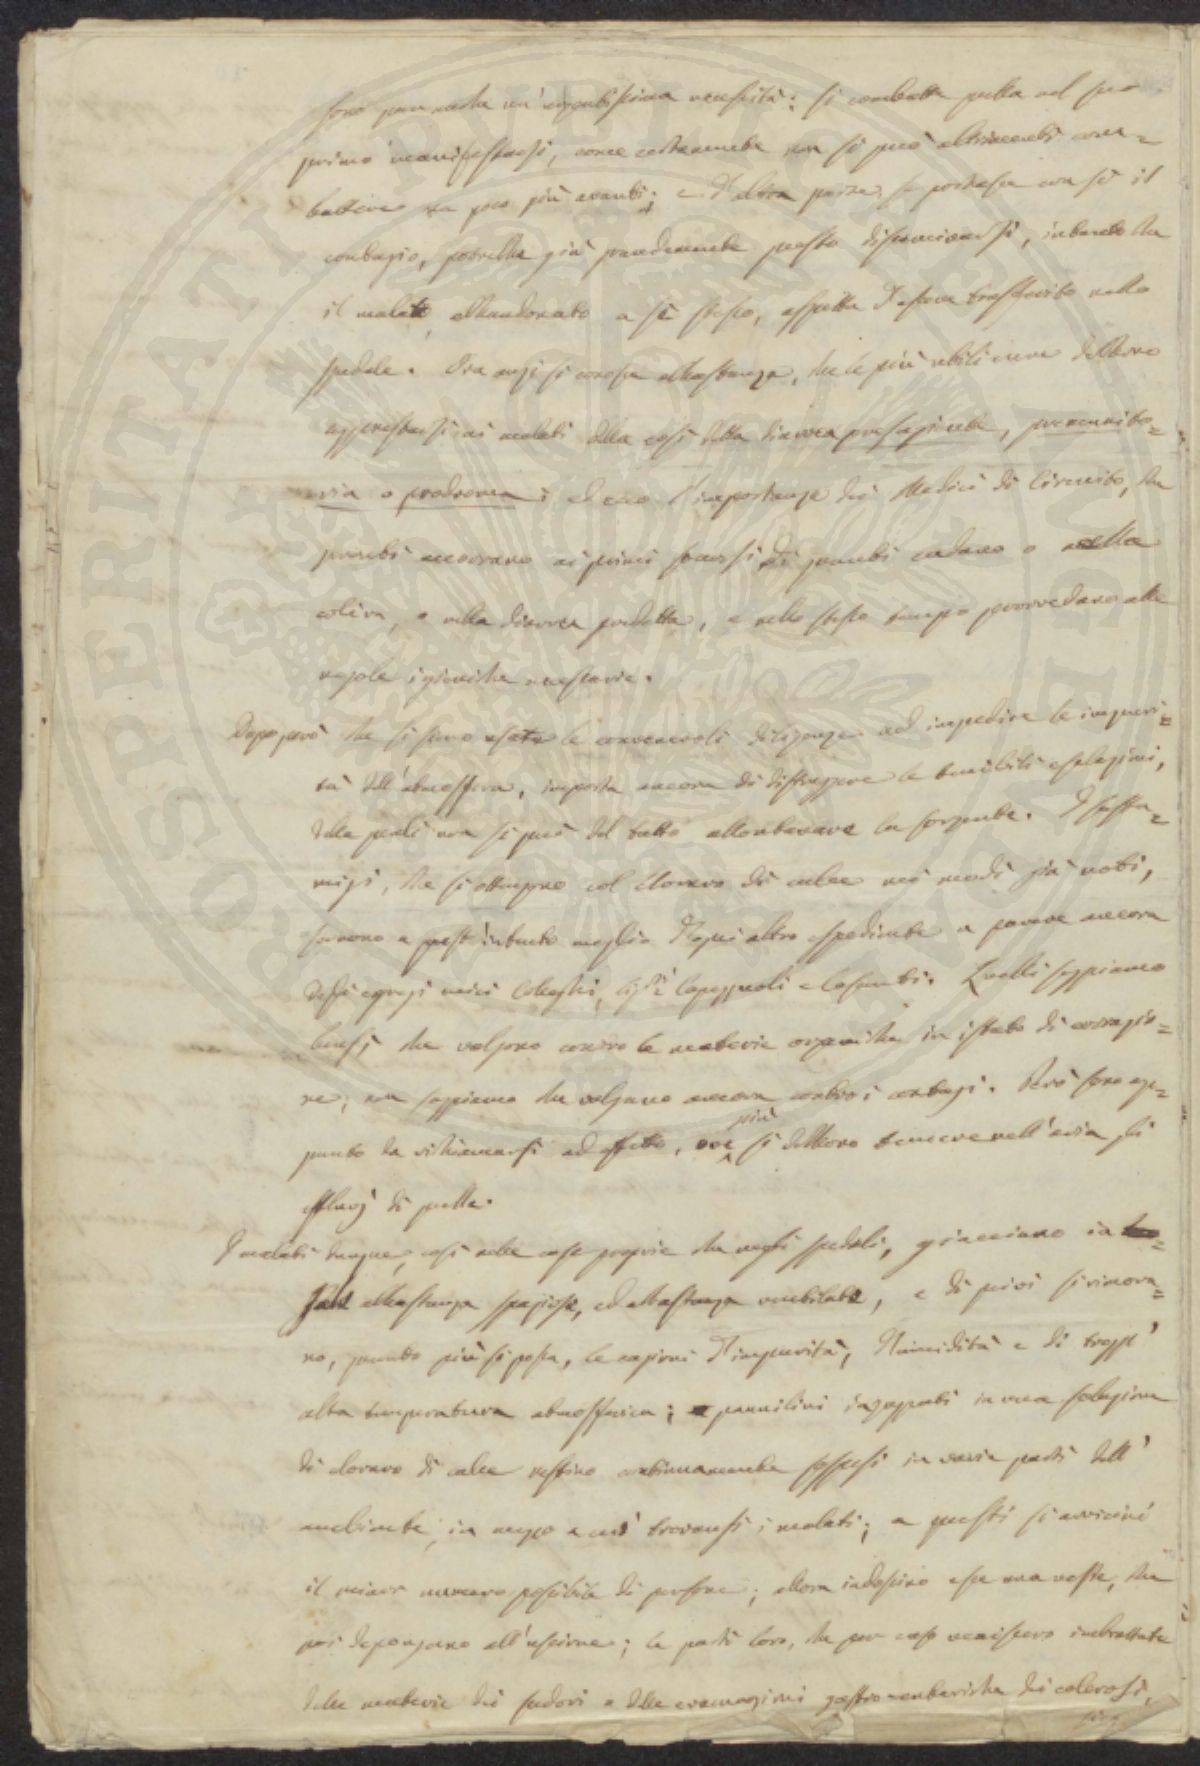 sono pur anche un'urgentissima necessità: si combatta quella nel suo
primo manifestarsi, come certamente non si può altrimenti com=
battere un poco più avanti; e d'altra parte, se portasse con sè il
contagio, potrebbe già grandemente questo disseminarsi, intanto che
il malato, abbandonato a sè stesso, aspetta d'essere trasferito nello
spedale. Ora anzi si conosce abbastanza, che le più utili cure debbono
apprestarsi ai malati della così detta diarrea presagiente, premonito=
ria o prodroma; ed ecco l'importanza dei Medici di Circuito, che
pronti accorrano ai primi soccorsi di quanti cadano o nella
colera, o nella diarrea predetta, e nello stesso tempo provvedano alle
regole igieniche necessarie.
Dopo però che si sieno usate le convenevoli diligenze ad impedire le impuri=
tà dell'atmosfera, importa ancora di distruggere le temibili esalazioni,
delle quali non si può del tutto allontanare la sorgente. I suffu=
migi, che si ottengono col cloruro di calce nei modi già noti,
servono a quest'intento meglio d'ogni altro espediente a parere ancora
degli egregi miei Colleghi, Sig.ri Capezzuoli e Casanti. Quelli sappiamo
bensì che valgono contro le materie organiche in istato di corruzio=
ne; non sappiamo che valgano ancora contro i contagi. Però sono ap=
punto da richiamarsi ad effetto, ove più si debbono temere nell'aria gli
effluvj di quelle.
I malati dunque, così nelle case proprie che negli spedali, giacciano in
abbastanza spaziose, ed abbastanza ventilate, e di quivi si rimova=
no, quanto più si possa, le cagioni d'impurità, d'umidità e di tropp'
alta temperatura atmosferica; pannilini inzuppati in una soluzione
di cloruro di calce restino continuamente sospesi in varie parti dell'
ambiente, in mezzo a cui trovansi i malati; a questi si avvicini
il minor numero possibile di persone; allora indossino esse una veste, che
poi depongano all'uscirne; le parti loro, che per caso venissero imbrattate
delle materie dei sudori o delle evacuazioni gastro-enteriche dei colerosi,